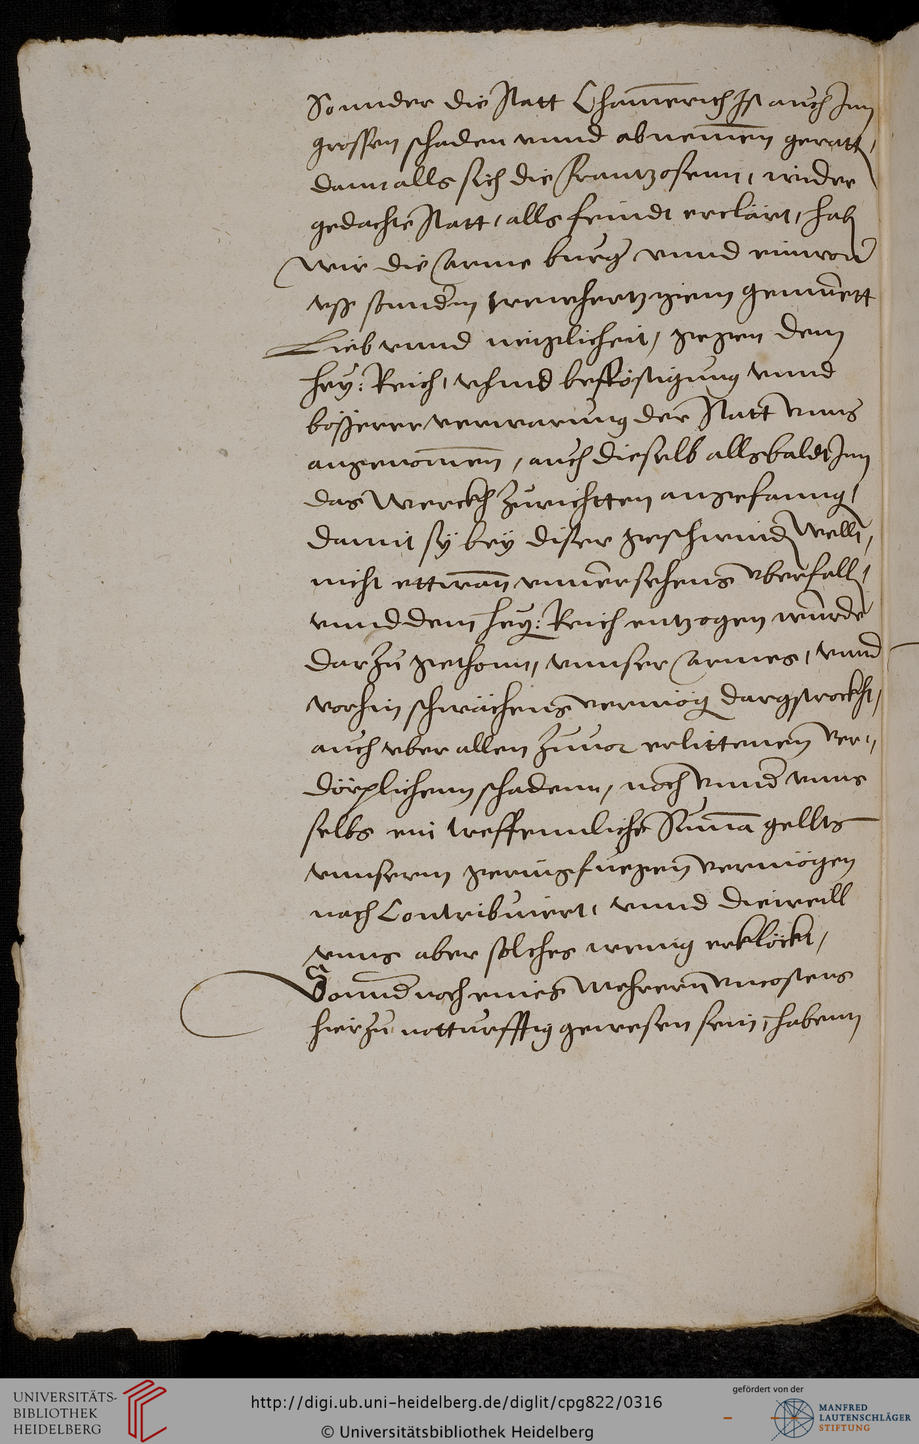 Sonnder die Statt Chamerich Ist auch Inn
grossen schaden unnd abnemen geratt,
Dann alls sich die Frantzosenn, wider
gedachte Statt, alls feindt erclärt, hab
wir die arme burg unnd einwon
uss sonndern trewhertzigem gemuett
Lieb unnd neiglicheit, gegen dem
hey: Reich, unnd bevestigung unnd
bösserer verwarung der Statt unns
angenomen, auch dieselb allsbaldt Inn
das Werckh zurichtten angefanng,
damit sy bey diser geschwind wellt,
nicht ettwan unversehens uberfall,
unnd dem hey: Reich entzogen wurde
darzu gethonn, unnser armes, unnd
vorhin schwachens vermög dargstreckht,
auch uber allen zuvor erlittenen ver,
dörplichenn schadenn, noch unnd unns
selbs ein treffennliche Suma gellts
unnserm geringfuegen vermögen
nach Contribuiert, unnd dieweill
unns aber solches wenig erklöckt,
Sonnd noch eines Mehrern uncostens
hierzu notturfftig gewesen sein, habenn
UNIVERSITÄTS-
BIBLIOTHEK
HEIDELBERG
http://digi.ub.uni-heidelberg.de/diglit/cpg822/0316
© Universitätsbibliothek Heidelberg
gefördert von der
MANFRED
LAUTENSCHLÄGER
STIFTUNG